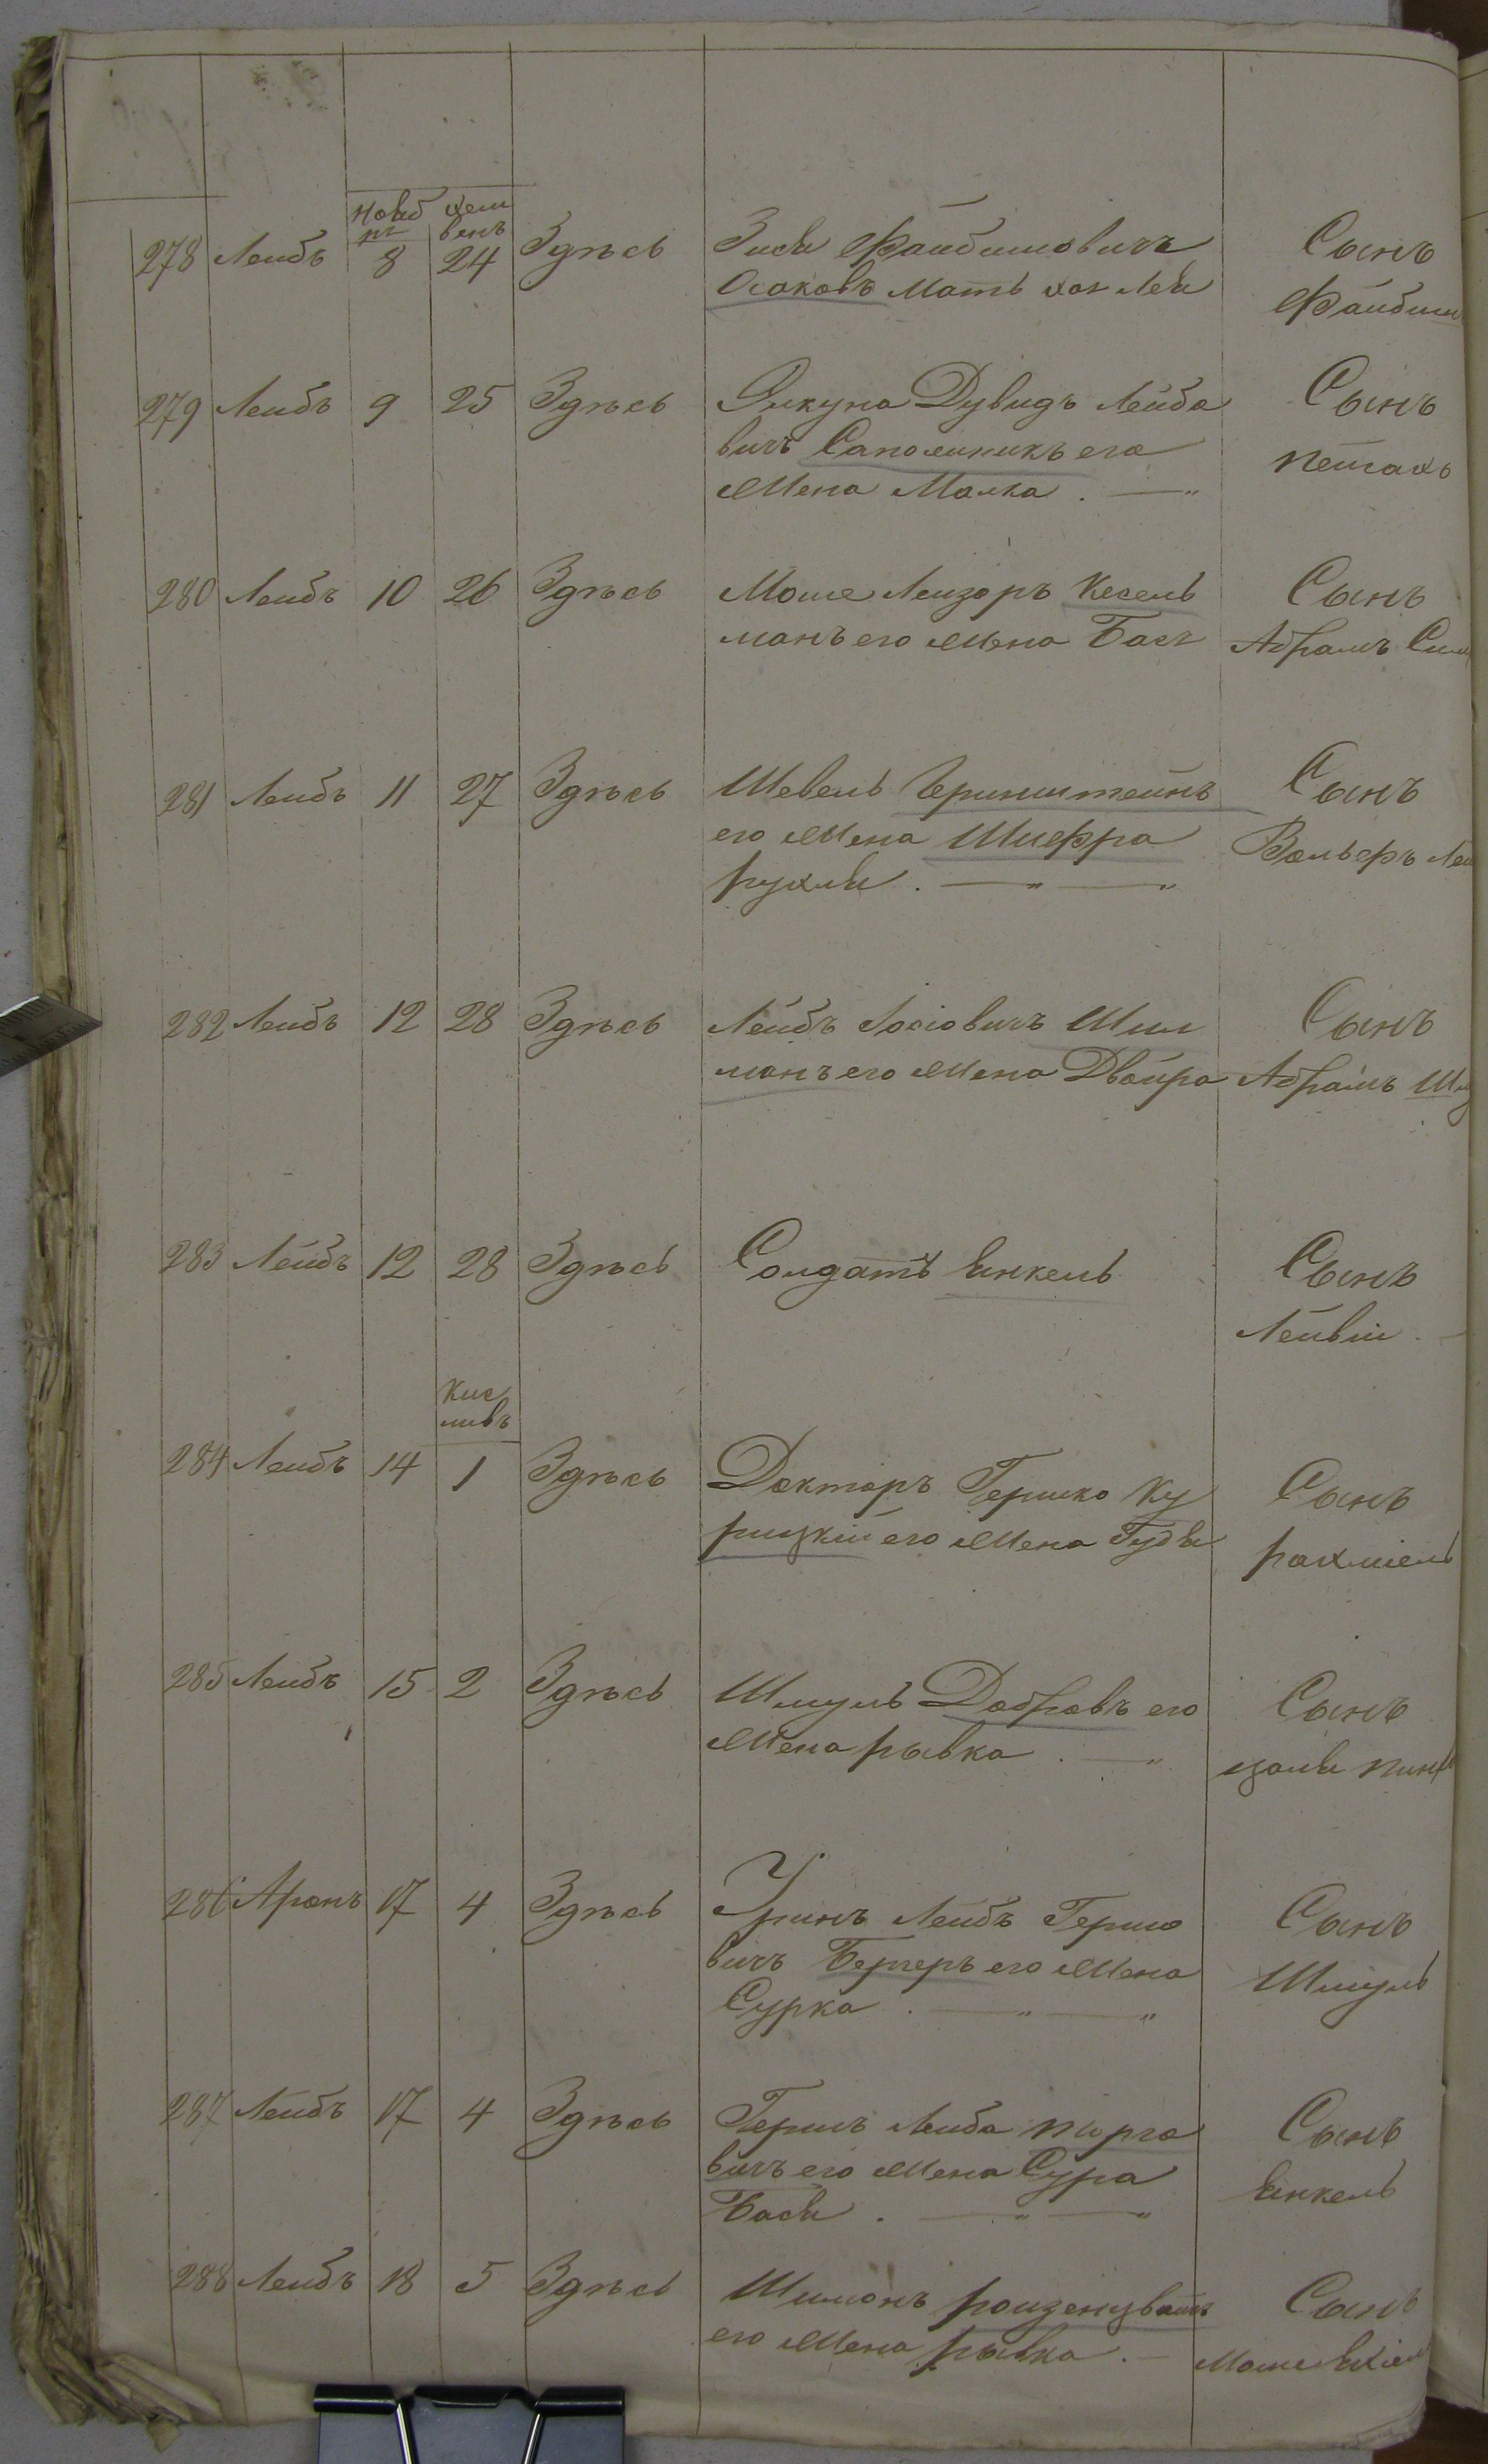 Нояб хеш
ря венъ
278 Лейбъ 8 24 Здѣсь Зися Файбишовичъ Сынъ
Осаковъ мать хая Лея Файбиш
279 Лейбъ 9 25 Здѣсь Дувидъ Лейба Сынъ
вичъ Сапожникъ его Пейсахъ
Жена Малка . — „
280 Лейбъ 10 26 Здѣсь Моше Лейзоръ Кесель Сынъ
манъ его Жена Бася Абрамъ
281 Лейбъ 11 27 Здѣсь Шевель Гринштейнъ Сынъ
его Жена Шифра Вольфъ
рухля . — „ — „
282 Лейбъ 12 28 Здѣсь Лейбъ Іосіовичъ Шил Сынъ
манъ его Жена Двойра Абрамъ
283 Лейбъ 12 28 Здѣсь Солдатъ Янкель Сынъ
Лейвій .
Кис
ливъ
284 Лейбъ 14 1 Здѣсь Докторъ Гершко Ку Сынъ
рицкій его Жена Гудя рахміель
285 Лейбъ 15 2 Здѣсь Шмуль Добровъ его Сынъ
Жена рывка . — „ пинх
286 Аронъ 17 4 Здѣсь Уринъ Лейбъ Гершо Сынъ
вичъ Бергеръ его Жена Шмуль
Сурка . — „ — „
287 Лейбъ 17 4 Здѣсь Гершъ Лейба пюрго Сынъ
вичъ его Жена Сура Янкель
Бася . — „ — „
288 Лейбъ 18 5 Здѣсь Шимонъ ройзенцвайгъ Сынъ
его Жена рывка . — Моше